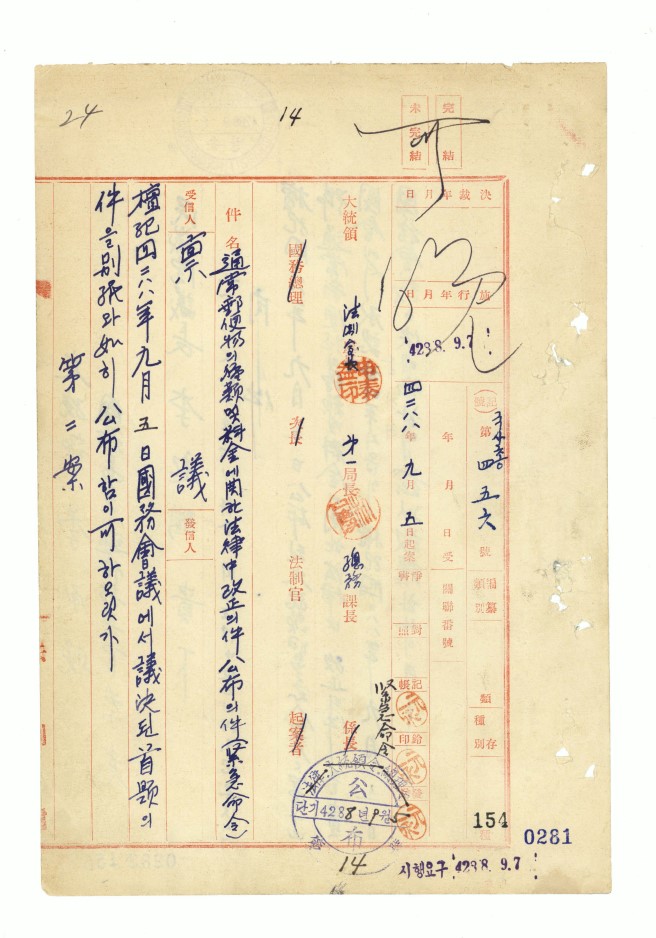 24
14
未完結
完結
可
決裁 年 月 日
施行 年 月 日
4288. 9. 7.
記號
第 四五六 號
年 月 日 受
四二八八年 九月 五日 起案
關聯番號
淨書
對照
記帳
鈐印
編纂類別
種別
大統領
法制室長
第一局長
總務課長
係長
緊急命令
國務總理
次長
法制官
起案者
件名
通常郵便物의 種類 및 料金에 關한 法律中 改正의 件 公布의 件 (緊急命令)
受信人
發信人
稟議
檀紀四二八八年 九月 五日 國務會議에서 議決된 首題의
件을 別紙와 如히 公布함이 可하오릿가
第二案
公布
단기 4288년 9월
14
154
0281
시행요구 4288. 9. 7